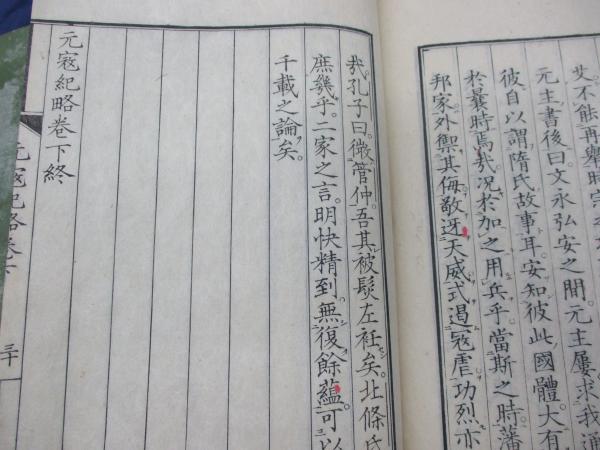 艾不能再擧時宗
元主書後曰文永弘安之間元主屢求我通
彼自以謂隋氏故事耳安知彼此國體大有
於曩時焉哉况於加之用兵乎當斯之時藩
邦家外禦其侮敬迓天威式遏寇虐功烈亦
哉孔子曰微管仲吾其被髮左衽矣北條氏
庶幾乎二家之言明快精到無復餘蘊可以
千載之論矣
元寇紀略卷下終
元寇紀略卷下
三十